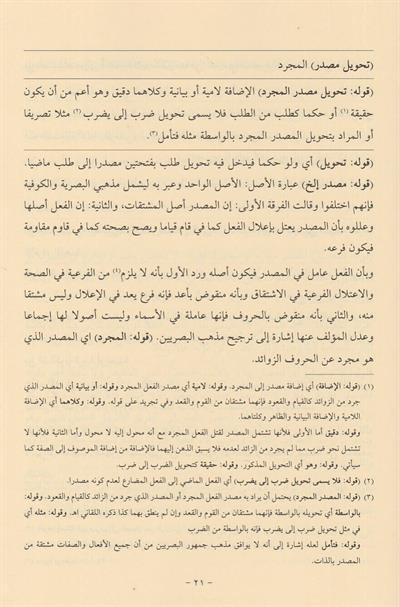 (تحويل مصدر) المجرد
(قوله: تحويل مصدر المجرد) الإضافة لامية أو بيانية وكلاهما دقيق وهو أعم من أن يكون
حقيقة (١) أو حكما كطلب من الطلب فلا يسمى تحويل ضرب إلى يضرب (٢) مثلا تصريفا
أو المراد بتحويل المصدر المجرد بالواسطة مثله فتأمل(٣).
(قوله: تحويل) أي ولو حكما فيدخل فيه تحويل طلب بفتحتين مصدرا إلى طلب ماضيا.
(قوله: مصدر إلخ) عبارة الأصل: الأصل الواحد وعبر به ليشمل مذهبي البصرية والكوفية
فإنهم اختلفوا وقالت الفرقة الأولى: إن المصدر أصل المشتقات، والثانية: إن الفعل أصلها
وعللوه بأن المصدر يعتل بإعلال الفعل كما في قام قياما ويصح بصحته كما في قاوم مقاومة
فيكون فرعه.
وبأن الفعل عامل في المصدر فيكون أصله ورد الأول بأنه لا يلزم(٤) من الفرعية في الصحة
والاعتلال الفرعية في الاشتقاق وبأنه منقوض بأعد فإنه فرع يعد في الإعلال وليس مشتقا
منه، والثاني بأنه منقوض بالحروف فإنها عاملة في الأسماء وليست أصولا لها إجماعا
وعدل المؤلف عنها إشارة إلى ترجيح مذهب البصريين. (قوله: المجرد) اي المصدر الذي
هو مجرد عن الحروف الزوائد.
(١) (قوله: الإضافة) أي إضافة مصدر إلى المجرد. وقوله: لامية أي مصدر الفعل المجرد وقوله: أو بيانية أي المصدر الذي
جرد من الزوائد كالقيام والقعود فإنهما مشتقان من القوم والقعد وفي تجريد على قوله. وقوله: وكلاهما أي الإضافة
اللامية والإضافة البيانية والظاهر وكلتاهما.
وقوله: دقيق أما الأولى فلأنها تشتمل المصدر لقتل الفعل المجرد مع أنه محول إليه لا محول وأما الثانية فلأنها لا
تشتمل نحو ضرب مما لم يجرد من الزائد لعدمه فلا يسبق الذهن إليهما فالإضافة من إضافة الموصوف إلى الصفة كما
سيأتي. وقوله: وهو أي التحويل المذكور. وقوله: حقيقة كتحويل الضرب إلى ضرب.
(٢) (قوله: فلا يسمى تحويل ضرب إلى يضرب) أي الفعل الماضي إلى الفعل المضارع لعدم كونه مصدرا.
(٣) (قوله: المصدر المجرد) يحتمل أن يراد به مصدر الفعل المجرد أو المصدر الذي جرد من الزائد كالقيام والقعود. وقوله:
بالواسطة أي تحويله بالواسطة فإنهما مشتقان من القوم والقعد وإن لم ينطق بهما كذا ذكره اللقاني اهـ. وقوله: مثله أي
في مثل تحويل ضرب إلى يضرب فإنه بالواسطة من الضرب
وقوله: فتأمل لعله إشارة إلى أنه لا يوافق مذهب جمهور البصريين من أن جميع الأفعال والصفات مشتقة من
المصدر بالذات.
– ٢١ –